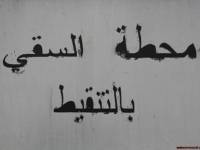 محطة السقي
بالتنقيط